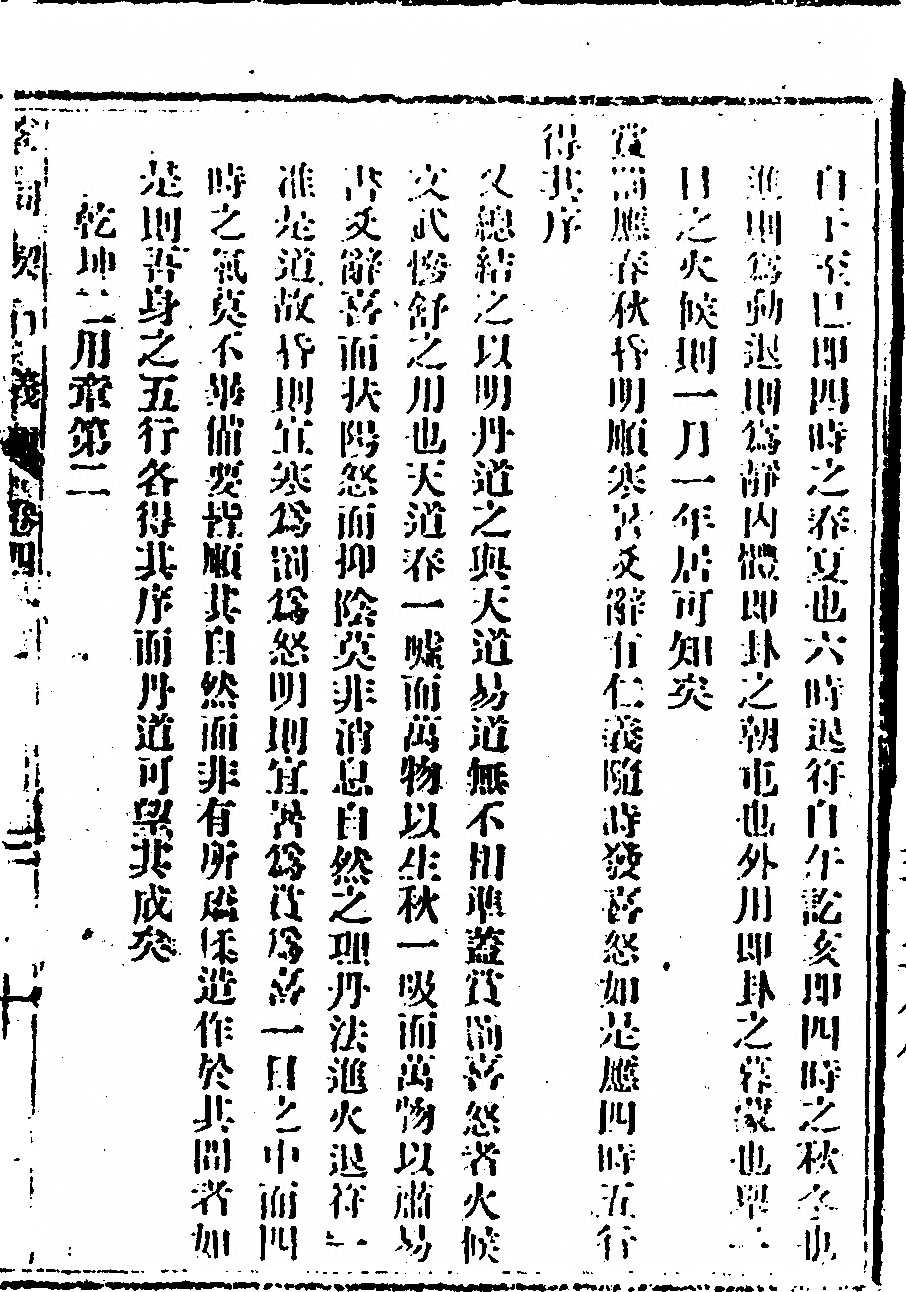 自子至巳即四時之春夏也六時退符自午訖亥即四時之秋冬也
進則為動退則為靜內體即卦之朝屯也外用即卦之暮蒙也舉一
日之火候則一月一年居可知矣
賞罰應春秋昏明順寒暑爻辭有仁義隨時發喜怒如是應四時五行
得其序
又總結之以明丹道之與天道易道無不相準蓋賞罰喜怒者火候
文武慘舒之用也天道春一噓而萬物以生秋一吸而萬物以肅易
書爻辭喜而扶陽怒而抑陰莫非消息自然之理丹法進火退符一
准是道故昏則宜寒為罰為怒明則宜暑為賞為喜一日之中而四
時之氣莫不畢備要皆順其自然而非有所矯揉造作於其間者如
是則吾身之五行各得其序而丹道可望其成矣
乾坤二用章第二
契行義 卷四